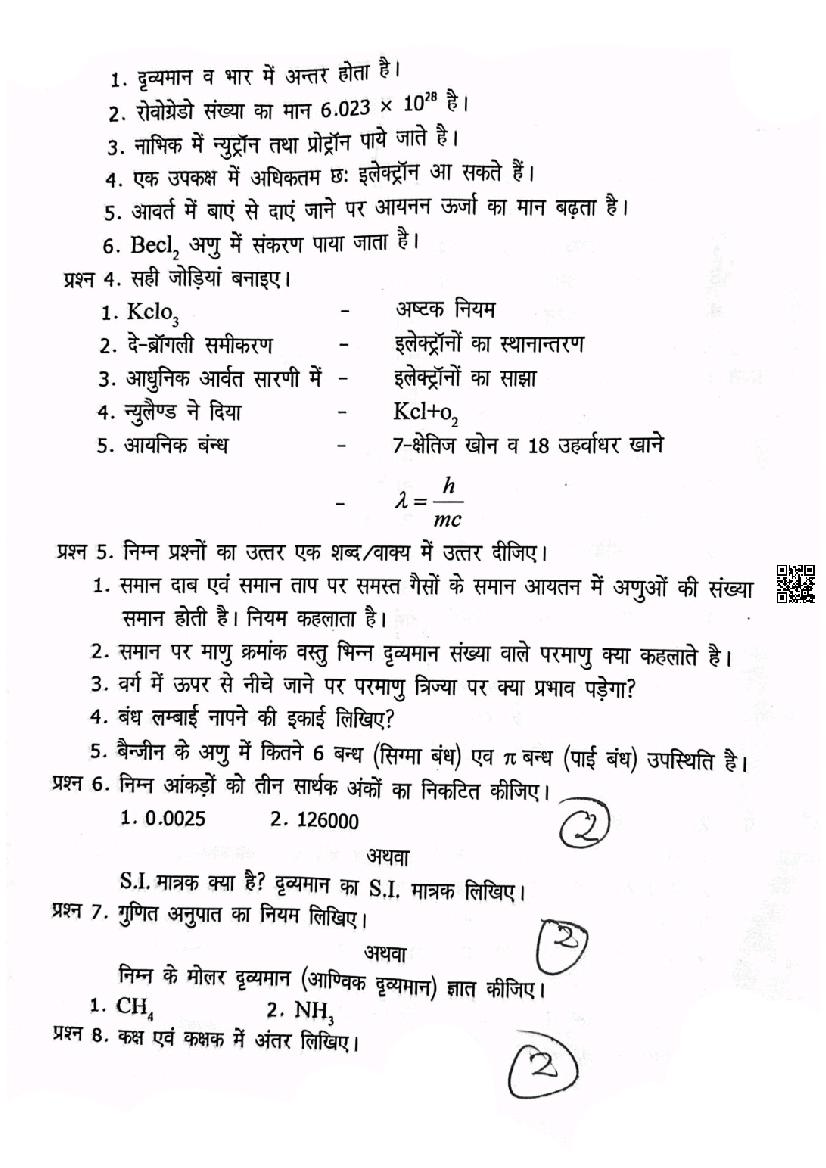 1. दृव्यमान व भार में अन्तर होता है।
2. रोवोग्रेडो संख्या का मान 6.023 × 10²⁸ है।
3. नाभिक में न्युट्रॉन तथा प्रोट्रॉन पाये जाते है।
4. एक उपकक्ष में अधिकतम छः इलेक्ट्रॉन आ सकते हैं।
5. आवर्त में बाएं से दाएं जाने पर आयनन ऊर्जा का मान बढ़ता है।
6. Becl₂ अणु में संकरण पाया जाता है।
प्रश्न 4. सही जोड़ियां बनाइए।
1. Kclo₃ - अष्टक नियम
2. दे-ब्रॉगली समीकरण - इलेक्ट्रॉनों का स्थानान्तरण
3. आधुनिक आर्वत सारणी में - इलेक्ट्रॉनों का साझा
4. न्युलैण्ड ने दिया - Kcl+o₂
5. आयनिक बंन्ध - 7-क्षेतिज खोन व 18 उहर्वाधर खाने
- λ = h/mc
प्रश्न 5. निम्न प्रश्नों का उत्तर एक शब्द/वाक्य में उत्तर दीजिए।
1. समान दाब एवं समान ताप पर समस्त गैसों के समान आयतन में अणुओं की संख्या
समान होती है। नियम कहलाता है।
2. समान पर माणु क्रमांक वस्तु भिन्न दृव्यमान संख्या वाले परमाणु क्या कहलाते है।
3. वर्ग में ऊपर से नीचे जाने पर परमाणु त्रिज्या पर क्या प्रभाव पड़ेगा?
4. बंध लम्बाई नापने की इकाई लिखिए?
5. बैन्जीन के अणु में कितने 6 बन्ध (सिग्मा बंध) एव π बन्ध (पाई बंध) उपस्थिति है।
प्रश्न 6. निम्न आंकड़ों को तीन सार्थक अंकों का निकटित कीजिए।
1. 0.0025 2. 126000
2
अथवा
S.I. मात्रक क्या है? दृव्यमान का S.I. मात्रक लिखिए।
प्रश्न 7. गुणित अनुपात का नियम लिखिए।
2
अथवा
निम्न के मोलर दृव्यमान (आण्विक दृव्यमान) ज्ञात कीजिए।
1. CH₄ 2. NH₃
प्रश्न 8. कक्ष एवं कक्षक में अंतर लिखिए।
2